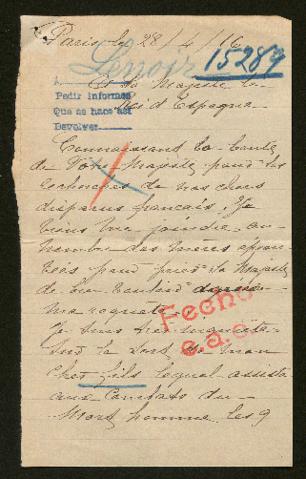 Paris le 28/4/16
Lerroir
15289
A Sa Majesté le
Roi d'Espagne
Pedir informes
Que se hace así
Devolver
Connaissant la bonté
de Votre Majesté pour les
recherches de nos chers
disparus français, Je
viens me joindre au
nombre des mères
pour Sa Majesté
de bien vouloir
ma
Fecho
e.a.
Je suis très
sur le sort de mon
cher fils lequel assista
aux Combats du
Mort homme les 9